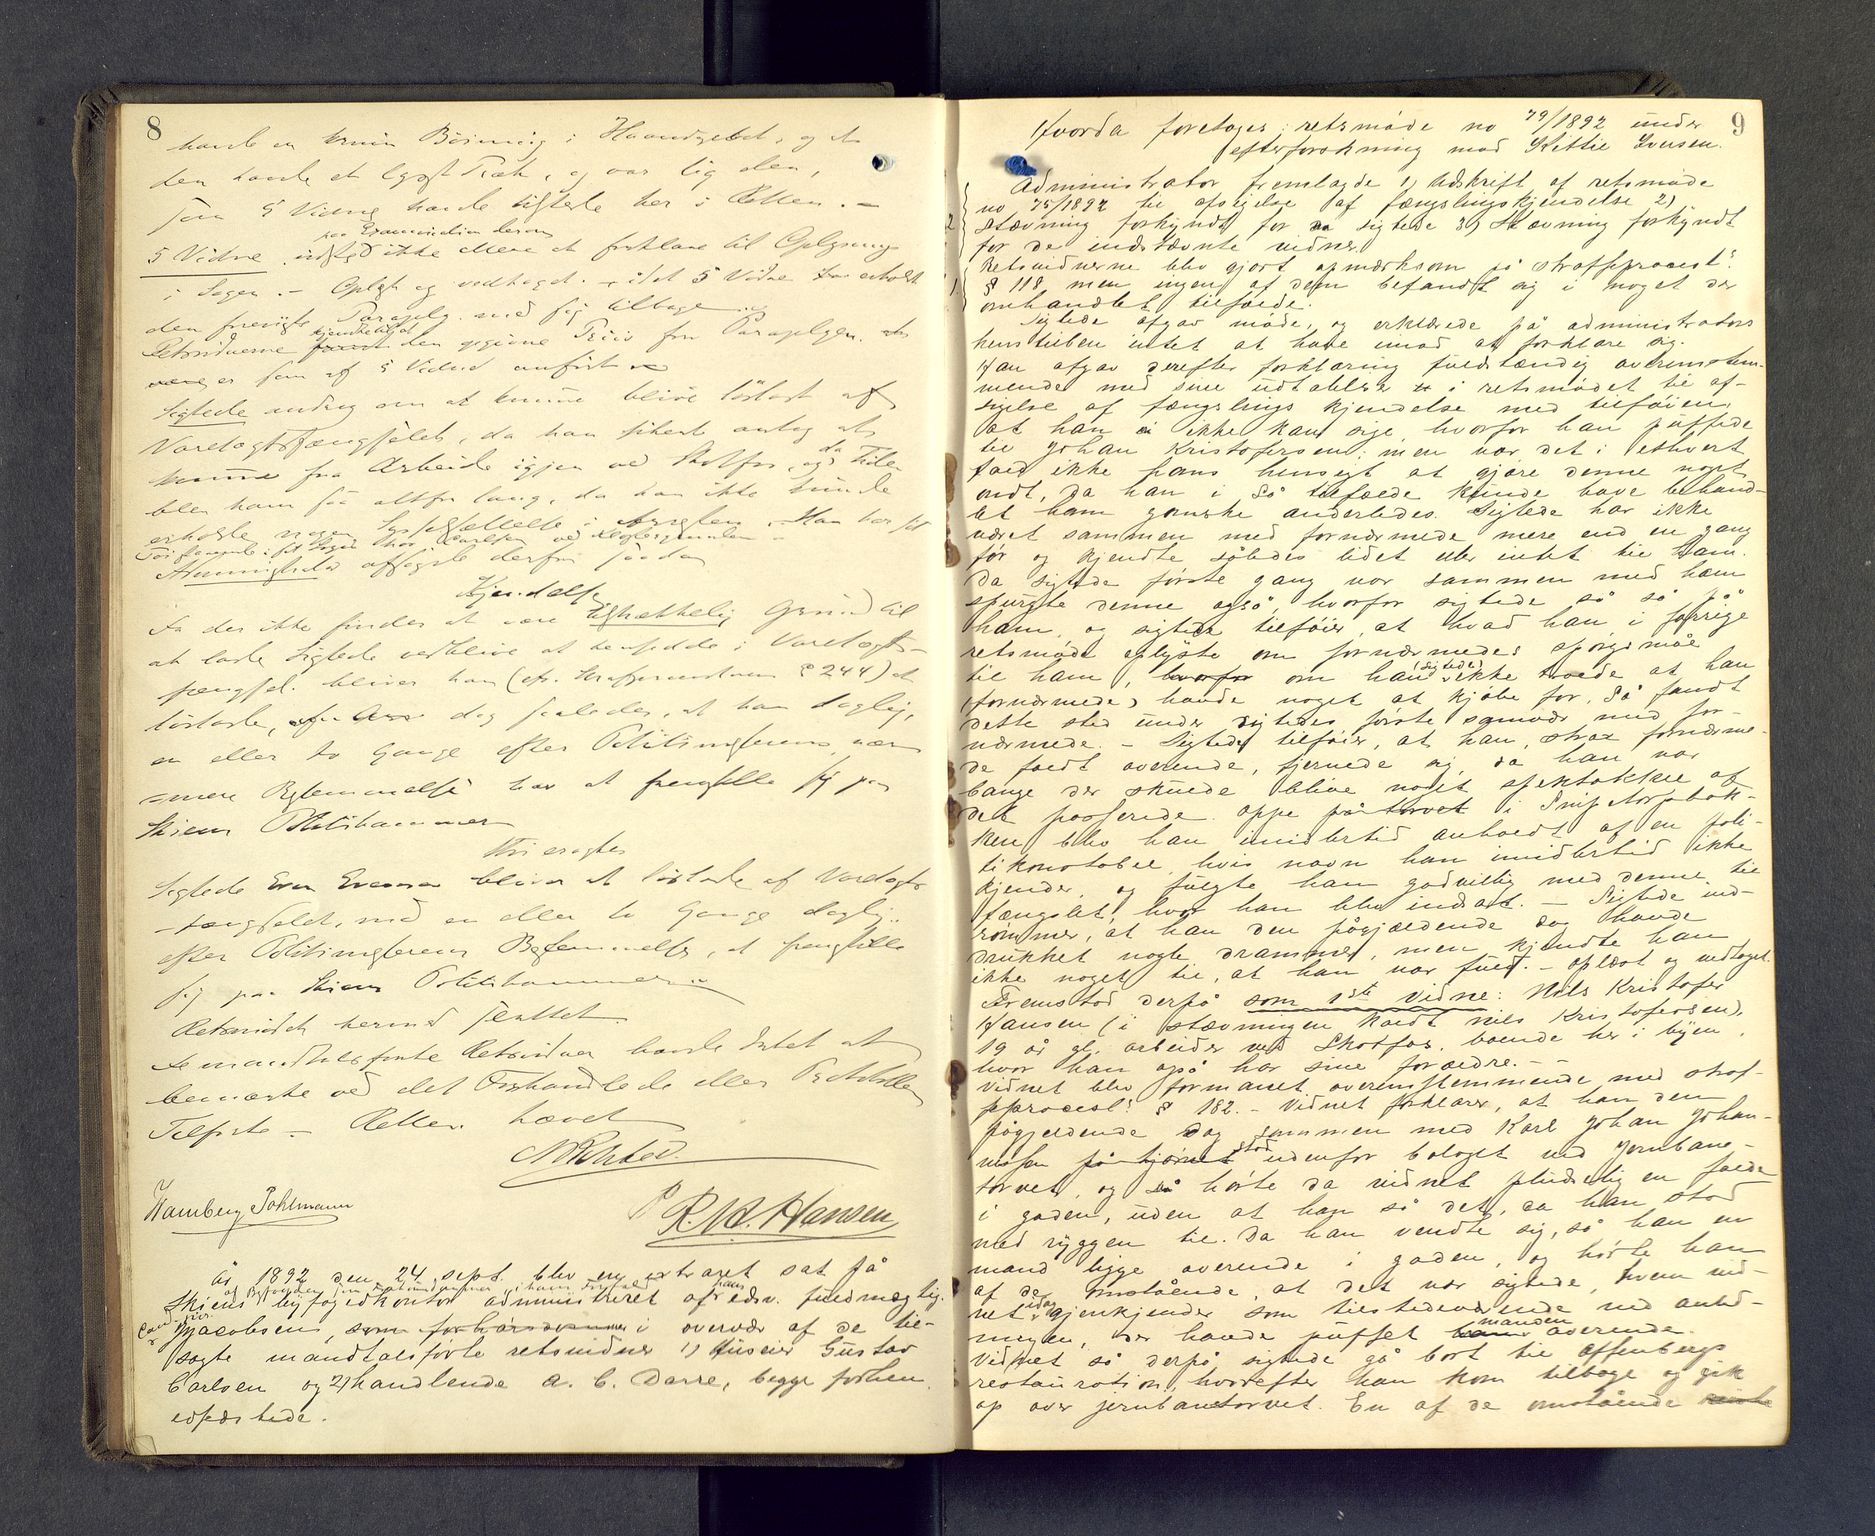 8
havde en brun Bøining i Haandgebet, og at
den havde et lyst Træk, og var lig den,
som 5 Vidne havde sigtede her i Retten. –
paa Examination derom
5 Vidne vidste ikke mere at forklare til Oplysning
i Sagen. – Oplæst og vedtaget. – idet 5 Vidne har erholdt
den foreviste Paraply med sig tilbage
Retsvidnerne den givne af Paraplyen at
være som af 5 Vidne anført
Sigtede androg om at kunne blive løsladt af
Varetægtsfængslet, da han sikkert antog at
kunne faa Arbeide igjen ved Skotfos, og da Tiden
blev ham saa altfor lang, da han ikke kunde
erholde nogen Sysselsættelse i Arresten. Han har
Administrator afsagde derfor saadan
Kjendelse
Da der ikke findes at være tilstrækkelig Grund til
at lade Sigtede vedblive at hensidde i Varetægts-
fængsel bliver han (cfr. Strafproceslovens § 244) at
løslade, dog saaledes, at han daglig,
en eller to Gange efter Politimesterens nær-
mere Bestemmelse har at fremstille sig paa
Skiens Politikammer
Thi eragtes
Sigtede Even Evensen bliver at løslade af Varetægts-
fængslet, med en eller to Gange daglig
efter Politimesterens Bestemmelse, at fremstille
sig paa Skiens Politikammer
Retsmødet hermed sluttet.
De mandtalsførte Retsvidner havde Intet at
bemærke ved det Forhandlede eller
Tilførte – Retten hævet
Hamberg Pohlmann
R. M. Hansen
År 1892 den 24 sept. blev en extraret sat på
Skiens byfogedkontor administreret af edsv. fuldmægtig
Jacobsen, i overvær af de til-
sagte mandtalsførte retsvidner 1) Huseier Gustav
Carlsen og 2) handlende A. C. Darre, begge forhen
edfæstede.
9
Hvorda foretoges: retsmøde no 79/1892 under
efterforskning mod Kittil Iversen.
Administrator fremlagde 1) Udskrift af retsmøde
no 75/1892 til afsigelse af fængslingskjendelse 2)
Stævning forkyndt for da sigtede 3) Stævning forkyndt
for de indstævnte vidner.
Retsvidnerne blev gjort opmærksom på straffprocesl:
§ 118, men ingen af dem befandt sig i noget der
omhandlet tilfælde.
Sigtede afgav møde, og erklærede på administrators
henstillen intet at have imod at forklare sig.
Han afgav derefter forklaring fuldstændig overensstem-
mende med sine udtalelser i retsmødet til af-
sigelse af fængslings kjendelse med tilføiende,
at han ei ikke kan sige, hvorfor han puffede
til Johan Kristofersen; men var det i ethvert
fald ikke hans hensigt at gjøre denne noget
ondt, da han i så tilfælde kunde have behand-
let ham ganske anderledes. Sigtede har ikke
været sammen med fornærmede mere end en gang
før og kjendte således lidet eller intet til ham.
Da sigtede første gang var sammen med ham
spurgte denne også, hvorfor sigtede så så på
ham, og sigtede tilføier, at hvad han i forrige
retsmøde oplyste om fornærmedes spørgsmål
til ham, hvorfor om han (sigtede) ikke troede at han
(fornærmede) havde noget at kjøbe for, så fandt
dette sted under sigtedes første samvær med for-
nærmede. – Sigtede tilføier, at han, strax fornærme-
de faldt overende, fjernede sig, da han var
bange der skulde blive noget spektakkel af
det passerede. Oppe på torvet i Sniptorpbak-
ken blev han imidlertid anholdt af en poli-
tikonstabel, hvis navn han imidlertid ikke
kjender, og fulgte han godvillig med denne til
fængslet, hvor han blev indsat. – Sigtede ind-
rømmer, at han den pågjældende dag havde
drukket nogle drammer, men kjendte han
ikke noget til, at han var fuld. – oplæst og vedtaget.
Fremstod derpå som 1ste vidne: Nils Kristofer
Hansen (i stævningen kaldt Nils Kristofersen),
19 år gl. arbeider ved Skotfos, boende her i byen,
hvor han også har sine forældre. –
Vidnet blev formanet overensstemmende med straf-
fprocesl: § 182. – Vidnet forklarer, at han den
pågjeldende dag sammen med Karl Johan Johan-
nessen stod på hjørnet udenfor bolaget ved Jernbane-
torvet, og så hørte da vidnet pludselig en falde
i gaden, uden at han så det, da han stod
med ryggen til. Da han vendte sig, så han en
mand ligge overende i gaden, og hørte han
af de omstående, at det var sigtede, hvem vid-
net idag gjenkjender som tilstedeværende ved anled-
ningen, der havde puffet ham manden overende.
Vidnet så derpå sigtede gå bort til Affenbergs
restauration, hvorefter han kom tilbage og gik
op over jernbanetorvet. En af de omstående